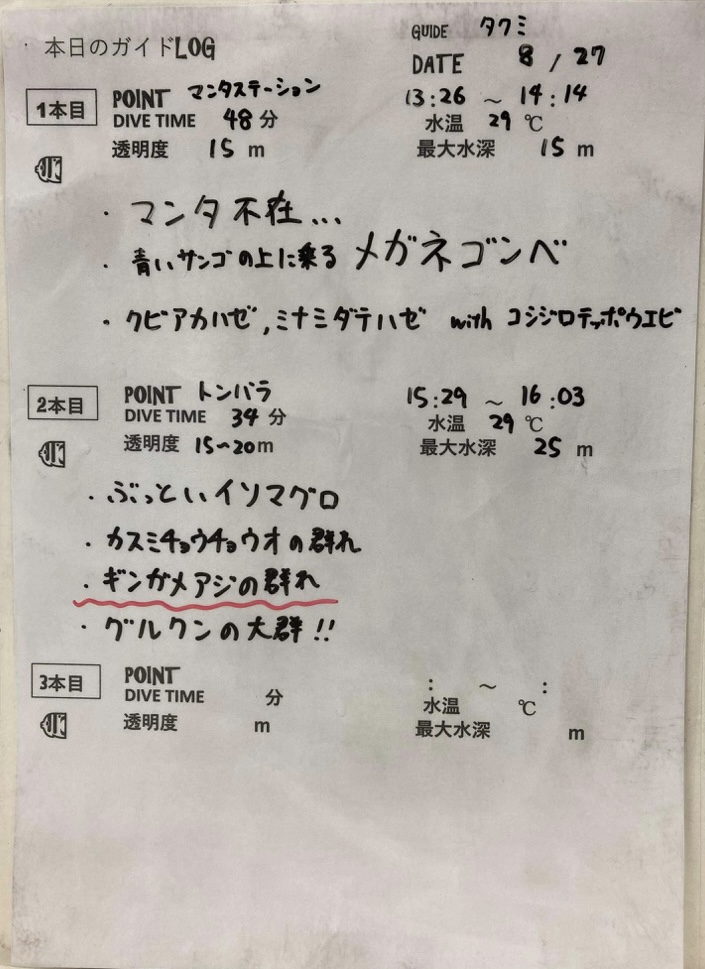 本日のガイドLOG
GUIDE タクミ
DATE 8 / 27
1本目 POINT マンタステーション 13:26 ~ 14:14
DIVE TIME 48 分 水温 29 ℃
透明度 15 m 最大水深 15 m
・マンタ不在...
・青いサンゴの上に乗る メガネゴンベ
・クビアカハゼ,ミナミダテハゼ with コシジロテッポウエビ
2本目 POINT トンバラ 15:29 ~ 16:03
DIVE TIME 34 分 水温 29 ℃
透明度 15~20m 最大水深 25 m
・ぶっといイソマグロ
・カスミチョウチョウオの群れ
・ギンガメアジの群れ
・グルクンの大群!!
3本目 POINT : ~ :
DIVE TIME 分 水温 ℃
透明度 m 最大水深 m